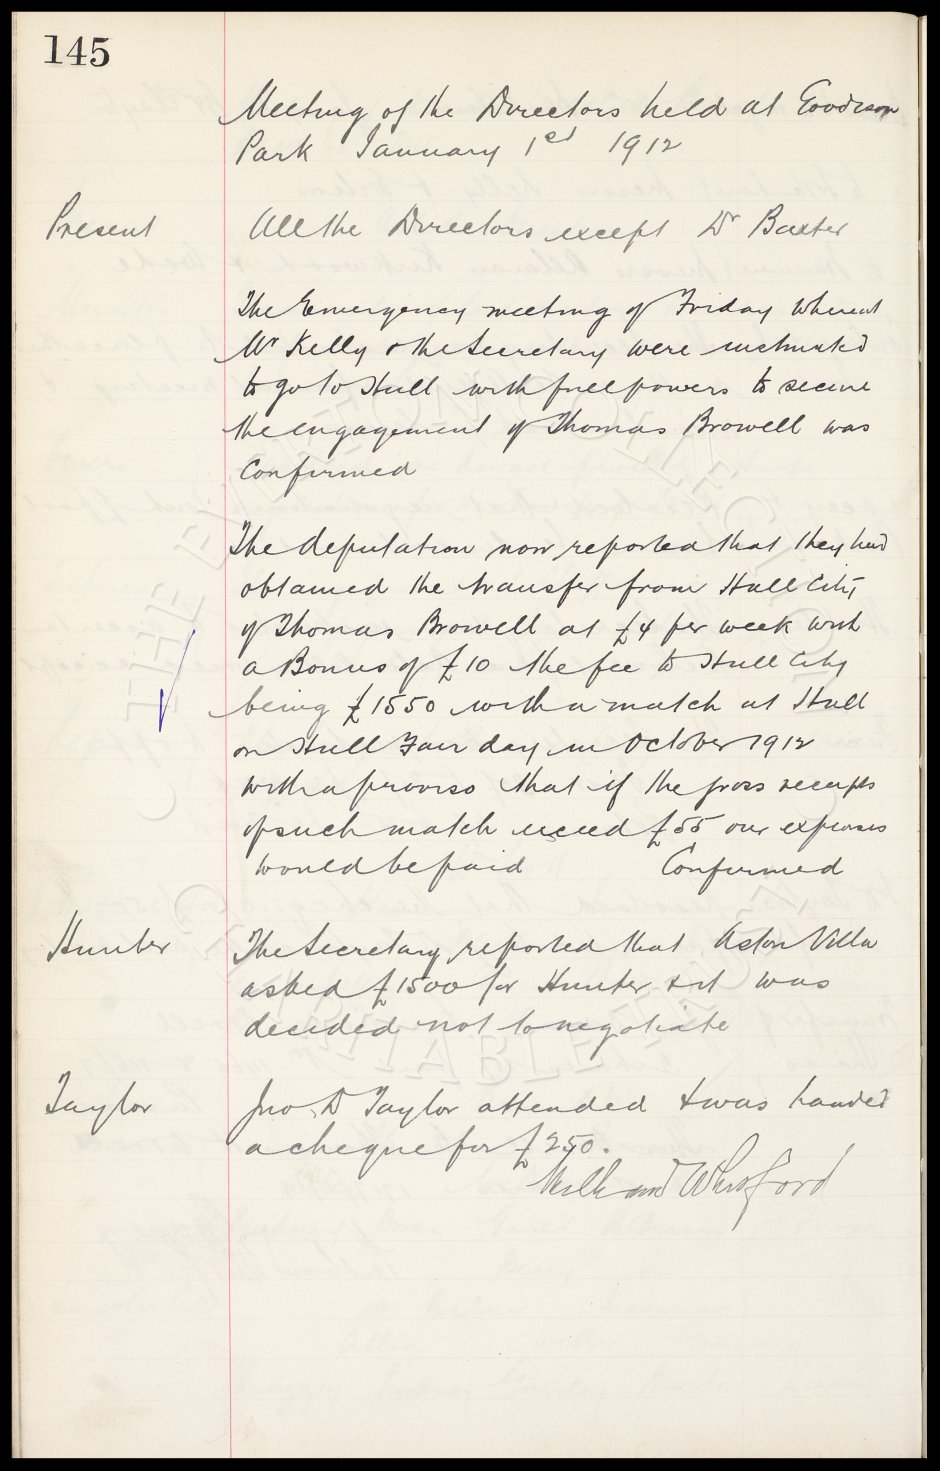 145
Meeting of the Directors held at Goodison
Park January 1st 1912
Present All the Directors except Dr Baxter
The Emergency meeting of Friday whereat
Mr Kelly & the Secretary were instructed
to go to Hull with full powers to secure
the engagement of Thomas Browell was
Confirmed
The deputation now reported that they had
obtained the transfer from Hull City
of Thomas Browell at £4 per week with
a Bonus of £10 the fee to Hull City
being £1550 with a match at Hull
on Hull Fair day in October 1912
with a proviso that if the gross receipts
of such match exceed £55 our expenses
would be paid Confirmed
Hunter The Secretary reported that Aston Villa
asked £1500 for Hunter & it was
decided not to negotiate
Taylor Jno D Taylor attended & was handed
a cheque for £250.
Will C